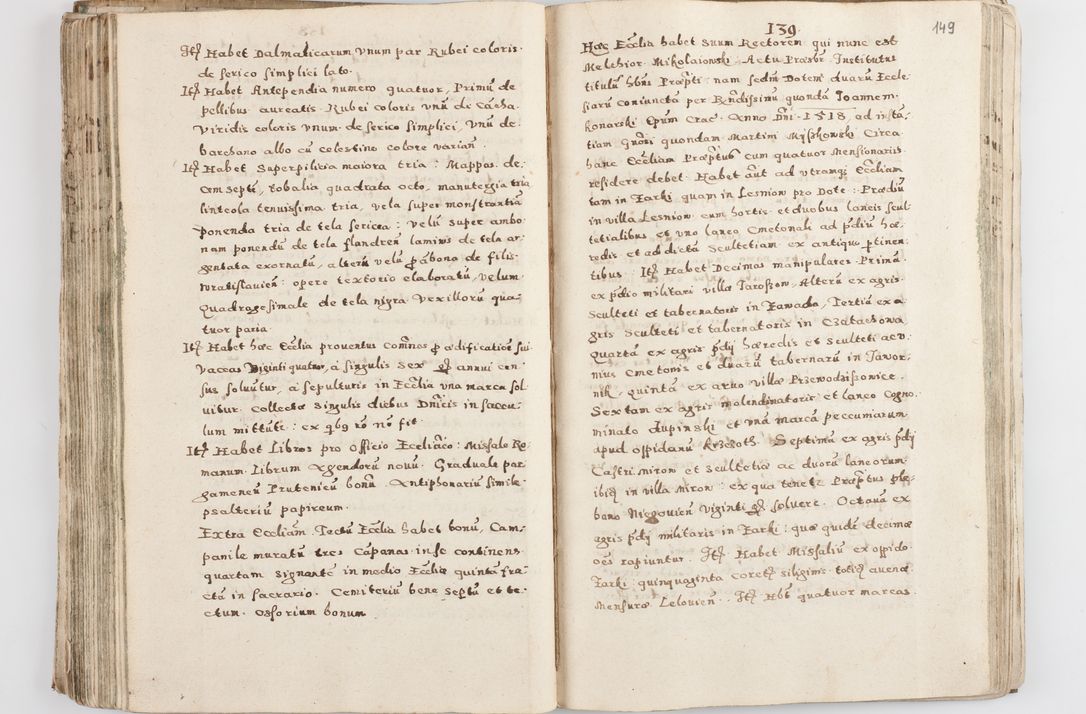 Itē Habet Dalmaticarum vnum par Rubei coloris
de serico simplici lato.
Itē Habet Antependia numero quatuor, Primū de
pellibus aureatis Rubei coloris vnū de Casha
Viridis coloris vnum de serico simplici, vnū de
barchano albo cū celestino colore varian̄
Itē Habet Superpilicia maiora tria: Mappas de-
cem septē, tobalia quadrata octo, manutergia tria
linteola tenuissima tria, vela super monstrantiā
ponenda tria de tela sericea: velū super ambo-
nam ponendū de tela flandren̄ laminis de tela ar-
gentata exornatū, alterū velū p̄ abona de filis
wratislavien̄: opere textorio elaboratū, velum
Quadragesimale de tela nigra Vexillorū qua-
tuor paria
Itē Habet hæc Ecclīa prouentus com̄nes p̄ ædificatioē sui
vaccas Viginti quatuor, à singulis sex gr̄ annui cen-
sus soluūtur, à sepulturis in Ecclīa vna marca sol-
uitur. Collectæ singulis diebus Dn̄icis in saccu-
lum mittūtr: ex qbg rō nō fit
Itē Habet Libros pro Officio Eccliā̄co: Missale Ro-
manum Librum Agendorū nouū. Graduale par-
gameneū Prutenicū bonū. Antiphonariū simile
psalteriū papireum.
Extra Eccliam. Tectū Ecclīa habet bonū, Cam-
panile muratū tres Cāpanas in se continens
quartam signantē in medio Ecclīæ quintā fra-
ctā in sacrario. Cemiteriū bene septū et te-
ctum. Ossorium bonum
139.
149
Hæc Ecclīa habet suum Rectorem qui nunc est
Melchior Mikolaiowski Actu Præsbr̄ Institutus
titulū hēns Præpti: nam sedm̄ Dotem duarū Eccle-
siarū coniuncta per Rn̄dissimū quondā Joannem
Konarski Ep̄um Crac: Anno Dn̄i 1518, ad istā-
tiam Gn̄osi quondam Martini Myszkowski Circa
hanc Eccliam Præptus cum quatuor Mensionaris
residere debet. Habet aūt ad vtrangȝ Eccliam
tam in Zarki quam in Lesniow pro Dote: Prædiū
in villa Lesniow cum hortis et duobus laneis scul-
tetialibus et vno laneo Cmetonali ad p̄diū hæ-
redis et ad dictā Scultetiam ex antiquo p̄tinen-
tibus. Itē Habet Decimas manipulares Primā
ex p̄dio militari villæ Jaroszow, Alterā ex agris
Sculteti et tabernatoris in Zawada, Tertiā ex a-
gris Sculteti et tabernatoris in Czatachowa,
Quartā ex agris p̄dij hæredis et Sculteti ac v-
nius Cmetonis et duarū tabernarū in Jawor-
nik, quintā ex aruo villæ Przewodziszowice.
Sextam ex agris molendinatoris et laneo Cogno-
minato Lupinski et vnā marcā peccuniarum
apud oppidanū Krzczoth. Septimā ex agris p̄dij
Castri Miron et Scultetiæ ac duorū laneorum
ibidē in villa Miron: ex qua tenetr Præptus ple-
bano Niegouien̄ Viginti gr̄ soluere. Octauā ex
agris p̄dij militaris in Zarki: quæ quidē decimæ
oēs rapiuntur. Itē Habet Missaliū ex oppido
Zarki: quinquaginta coretȝ siliginis totidē auenæ
Mensuræ Lelouien̄. Itē Hēt quatuor marcas